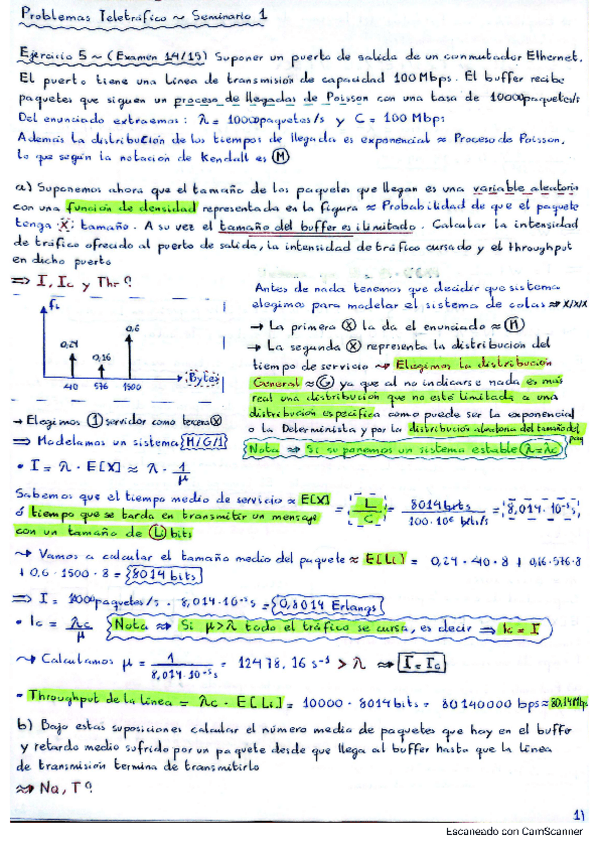 Problemas Teletráfico ~ Seminario 1
Ejercicio 5 ~ (Examen 14/15) Suponer un puerto de salida de un conmutador Ethernet.
El puerto tiene una línea de transmisión de capacidad 100 Mbps. El buffer recibe
paquetes que siguen un proceso de llegadas de Poisson con una tasa de 10000 paquetes/s
Del enunciado extraemos: λ = 10000 paquetes/s y C = 100 Mbps
Además la distribución de los tiempos de llegada es exponencial ≈ Proceso de Poisson,
lo que según la notación de Kendall es (M)
a) Suponemos ahora que el tamaño de los paquetes que llegan es una variable aleatoria
con una función de densidad representada en la figura ≈ Probabilidad de que el paquete
tenga X tamaño. A su vez el tamaño del buffer es ilimitado. Calcular la intensidad
de tráfico ofrecido al puerto de salida, la intensidad de tráfico cursado y el throughput
en dicho puerto
⇒ I, Ic y Thr?
fL
0,24
0,16
0,6
440 576 1500
Bytes
Antes de nada tenemos que decidir que sistema
elegimos para modelar el sistema de colas ⇒ X/X/X
→ La primera (X) la da el enunciado ≈ (M)
→ La segunda (X) representa la distribución del
tiempo de servicio ⇝ Elegimos la distribución
General ≈ (G) ya que al no indicarse nada es más
real una distribución que no esté limitada a una
distribución específica como puede ser la exponencial
o la Determinista y por la distribución aleatoria del tamaño del paq
→ Elegimos (1) servidor como tercera (X)
⇒ Modelamos un sistema M/G/1
Nota ⇒ Si suponemos un sistema estable (λ=λc)
• I = λ · E[X] ≈ λ · 1/μ
Sabemos que el tiempo medio de servicio ≈ E[X]
ó tiempo que se tarda en transmitir un mensaje
con un tamaño de (Li) bits
= L/C = 8014 bits / 100·10⁶ bits/s = 8,014·10⁻⁵ s
⇝ Vamos a calcular el tamaño medio del paquete ≈ E[Li] = 0,24 · 40 · 8 + 0,16 · 576 · 8
+ 0,6 · 1500 · 8 = 8014 bits
⇒ I = 10000 paquetes/s · 8,014·10⁻⁵ s = 0,8014 Erlangs
• Ic = λc/μ Nota ⇒ Si μ>λ todo el tráfico se cursa, es decir ⇒ Ic = I
⇝ Calculamos μ = 1/8,014·10⁻⁵ = 12478,16 s⁻¹ > λ ⇒ I = Ic
• Throughput de la línea = λc · E[Li] = 10000 · 8014 bits = 80140000 bps ≈ 80,14 Mbps
b) Bajo estas suposiciones calcular el número medio de paquetes que hay en el buffer
y retardo medio sufrido por un paquete desde que llega al buffer hasta que la línea
de transmisión termina de transmitirlo
⇒ Nq, T?
1)
Escaneado con CamScanner